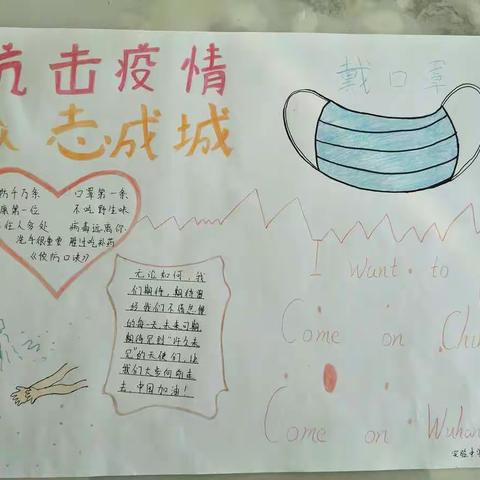 抗击疫情
众志成城
戴口罩
千万条 口罩第一条
第一位 不吃野生味
住人多处 病毒远离你
洗手很重要 胜过吃补药
《役防口诀》
无论如何，我
们期待，期待曾
经我们不信怠慢
的每一天，未来可期，
期待见到“许久未
见”的天使们，让
我们大步向前走
去，中国加油！
I want to
Come on Chin
Come on Wuhan
实验中